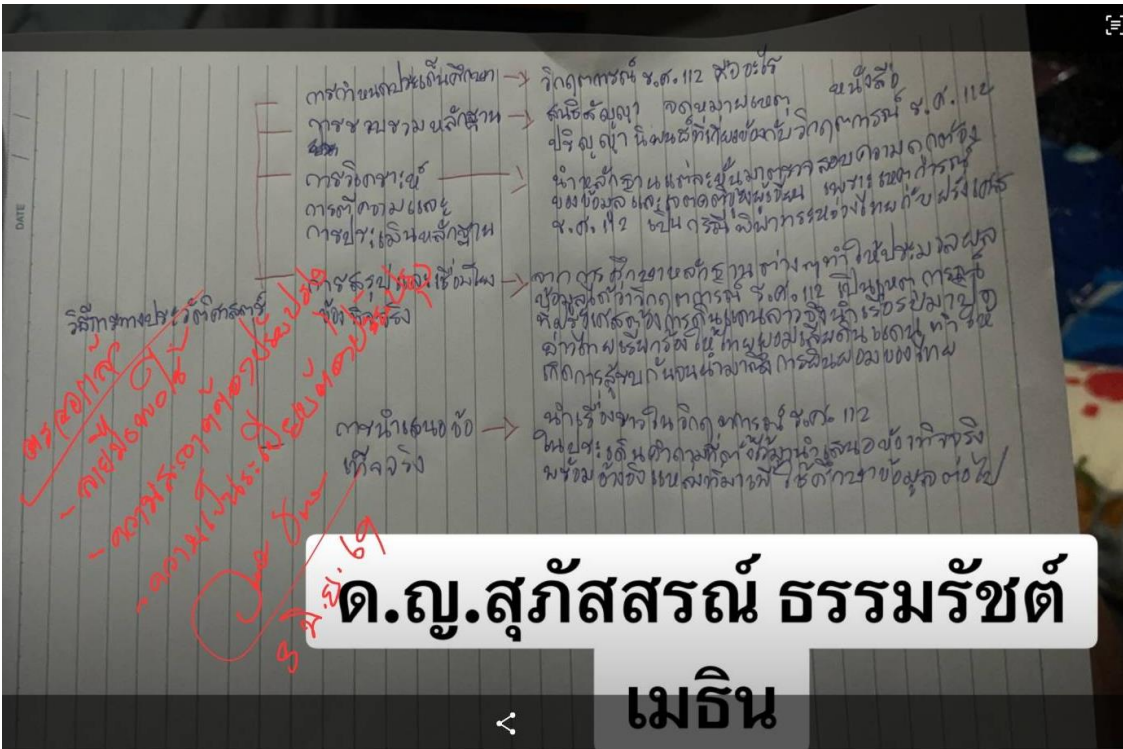 DATE
การกำหนดประเด็นศึกษา → วิกฤตการณ์ ร.ศ. 112 คืออะไร
การรวบรวมหลักฐาน → สนธิสัญญา จดหมายเหตุ หนังสือ
ปริญญานิพนธ์ที่เกี่ยวข้องกับวิกฤตการณ์ ร.ศ. 112
การวิเคราะห์
การตีความและ
การประเมินหลักฐาน
→ นำหลักฐานแต่ละชิ้นมาตรวจสอบความถูกต้อง
ของข้อมูลและเจตคติของผู้เขียน เพราะเหตุการณ์
ร.ศ. 112 เป็นกรณีพิพาทระหว่างไทยกับฝรั่งเศส
วิธีการทางประวัติศาสตร์
การสรุปและเชื่อมโยง
ข้อเท็จจริง
→ จากการศึกษาหลักฐานต่างๆทำให้ประมวลผล
ข้อมูลได้ว่าวิกฤตการณ์ ร.ศ. 112 เป็นเหตุการณ์
ที่ฝรั่งเศสต้องการดินแดนลาวจึงนำเรือรบมาปิด
อ่าวไทยเรียกร้องให้ไทยยอมเสียดินแดน ทำให้
เกิดการสู้รบกันจนนำมาสู่การยินยอมของไทย
การนำเสนอข้อ
เท็จจริง
→ นำเรื่องราวในวิกฤตการณ์ ร.ศ. 112
ในประเด็นคำถามที่ตั้งไว้มานำเสนอข้อเท็จจริง
พร้อมอ้างอิงแหล่งที่มาเพื่อใช้ศึกษาข้อมูลต่อไป
ตรวจแล้ว
- ลายมือพอใช้
- ความสะอาดต้องปรับปรุง
- ความเป็นระเบียบต้องปรับปรุง
8 มิ.ย. 69
ด.ญ.สุภัสสรณ์ ธรรมรัชต์
เมธิน